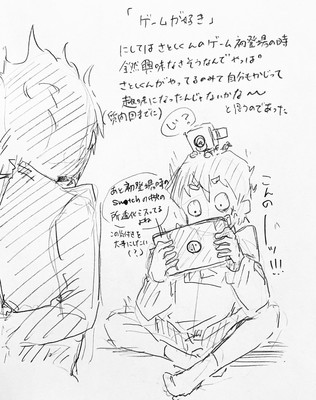 「ゲームが好き」
にしてはさとしくんのゲーム初登場の時
全然興味なさそうなんでやっぱ。
さとしくんがやってるのみて自分もかじって
趣味になったんじゃないかな〜〜
と思うのであった
い〜?
あと初登場の時の
Switchの
ミスってる
よね
この気付きを
大事にしたい
(?)
こんの
ーッ!!!